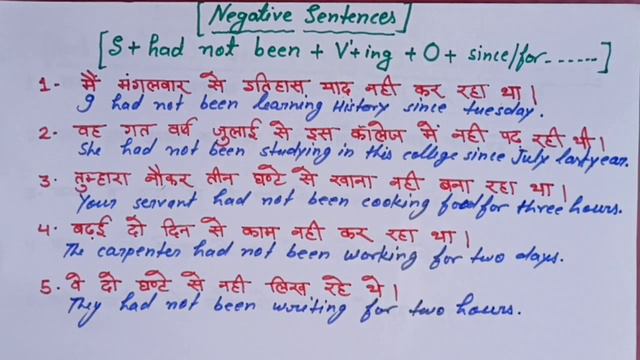 [Negative Sentences]
[S + had not been + V¹+ing + O + since/for.......]
1- मैं मंगलवार से इतिहास याद नही कर रहा था।
I had not been learning History since tuesday.
2- वह गत वर्ष जुलाई से इस कालेज में नही पढ़ रही थी।
She had not been studying in this college since July last year.
3- तुम्हारा नौकर तीन घण्टे से खाना नही बना रहा था।
Your servant had not been cooking food for three hours.
4- बढ़ई दो दिन से काम नही कर रहा था।
The carpenter had not been working for two days.
5- वे दो घण्टे से नही लिख रहे थे।
They had not been writing for two hours.